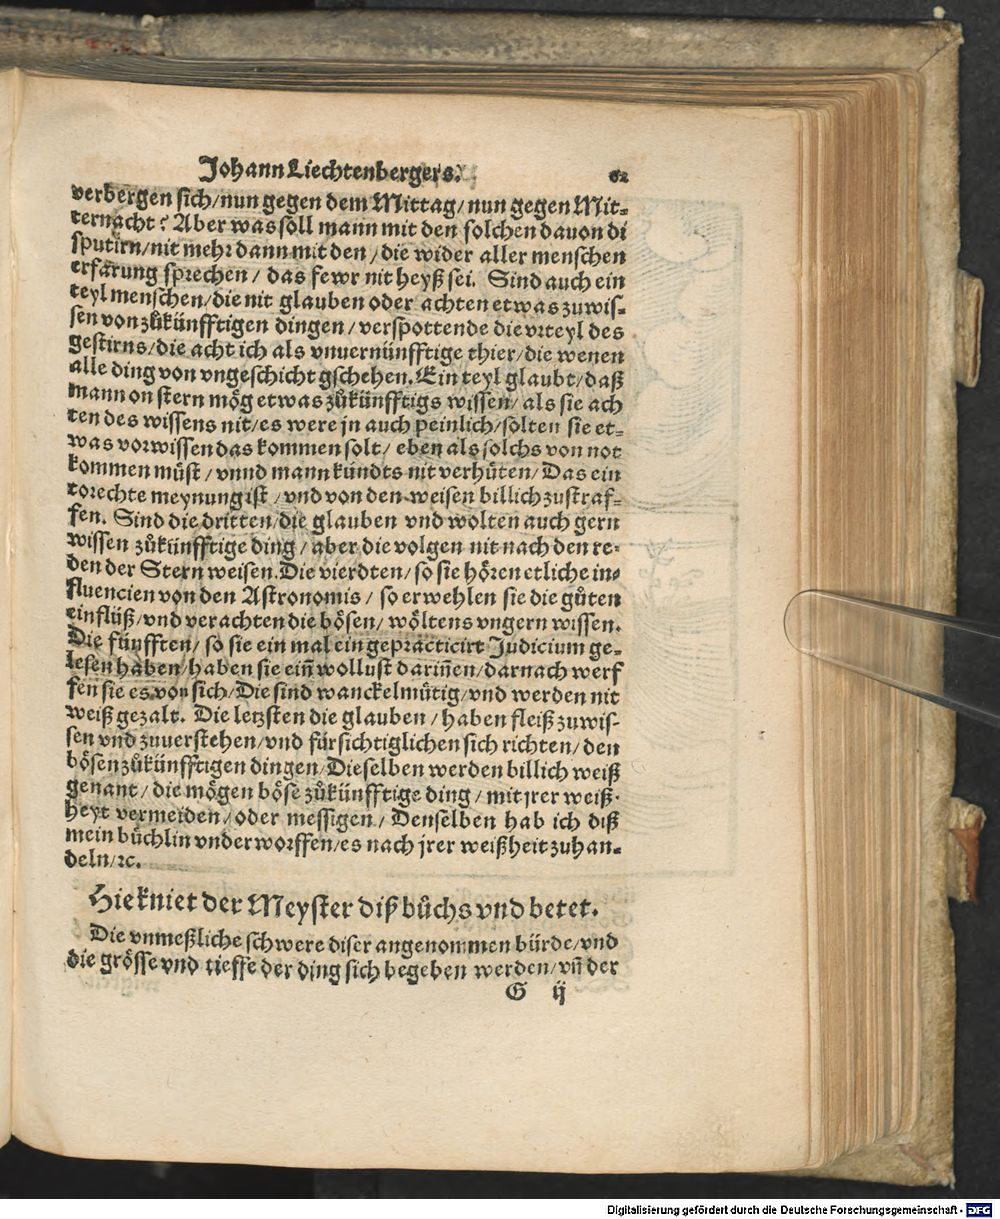 Johann Liechtenbergers. 62
verbergen sich/nun gegen dem Mittag/nun gegen Mit-
ternacht? Aber was soll mann mit den solchen dauon di
sputirn/nit mehr dann mit den/die wider aller menschen
erfarung sprechen/ das fewr nit heyß sei. Sind auch ein
teyl menschen/die nit glauben oder achten etwas zuwis-
sen von zůkünfftigen dingen/verspottende die vrteyl des
gestirns/die acht ich als vnuernünfftige thier/die wenen
alle ding von vngeschicht gschehen. Ein teyl glaubt/daß
mann on stern mög etwas zůkünfftigs wissen/ als sie ach
ten des wissens nit/es were jn auch peinlich/solten sie et-
was vorwissen das kommen solt/ eben als solchs von not
kommen müst/vnnd mann kündts nit verhüten/Das ein
torechte meynung ist/vnd von den weisen billich zustraf-
fen. Sind die dritten/die glauben vnd wolten auch gern
wissen zůkünfftige ding/aber die volgen nit nach den re-
den der Stern weisen. Die vierdten/so sie hören etliche in-
fluencien von den Astronomis/ so erwehlen sie die gůten
einflüß/vnd verachten die bösen/wöltens vngern wissen.
Die fünfften/ so sie ein mal ein gepracticirt Judicium ge-
lesen haben/haben sie ein̄ wollust darin̄en/darnach werf
fen sie es von sich/Die sind wanckelmütig/vnd werden nit
weiß gezalt. Die letzsten die glauben/haben fleiß zuwis-
sen vnd zuuerstehen/vnd fürsichtiglichen sich richten/den
bösen zůkünfftigen dingen/Dieselben werden billich weiß
genant/die mögen böse zůkünfftige ding/mit jrer weiß-
heyt vermeiden/oder messigen/Denselben hab ich diß
mein büchlin vnderworffen/es nach jrer weißheit zuhan-
deln/ꝛc.
Hie kniet der Meyster diß bůchs vnd betet.
Die vnmeßliche schwere diser angenommen bürde/vnd
die grösse vnd tieffe der ding sich begeben werden/vn̄ der
G ij
Digitalisierung gefördert durch die Deutsche Forschungsgemeinschaft - DFG